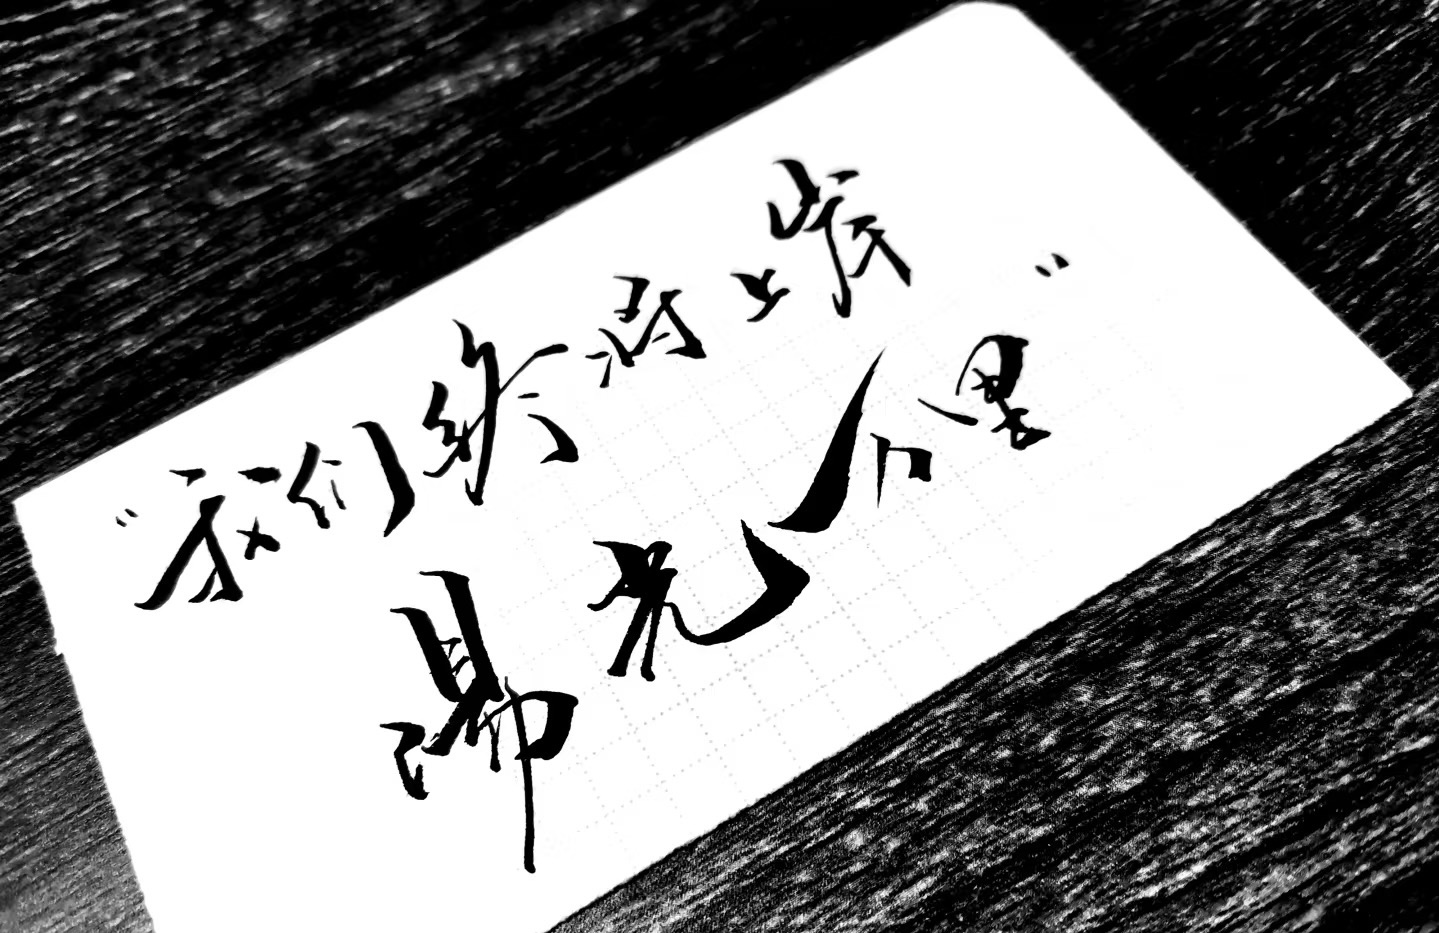 "我们终将上岸
阳光万里"